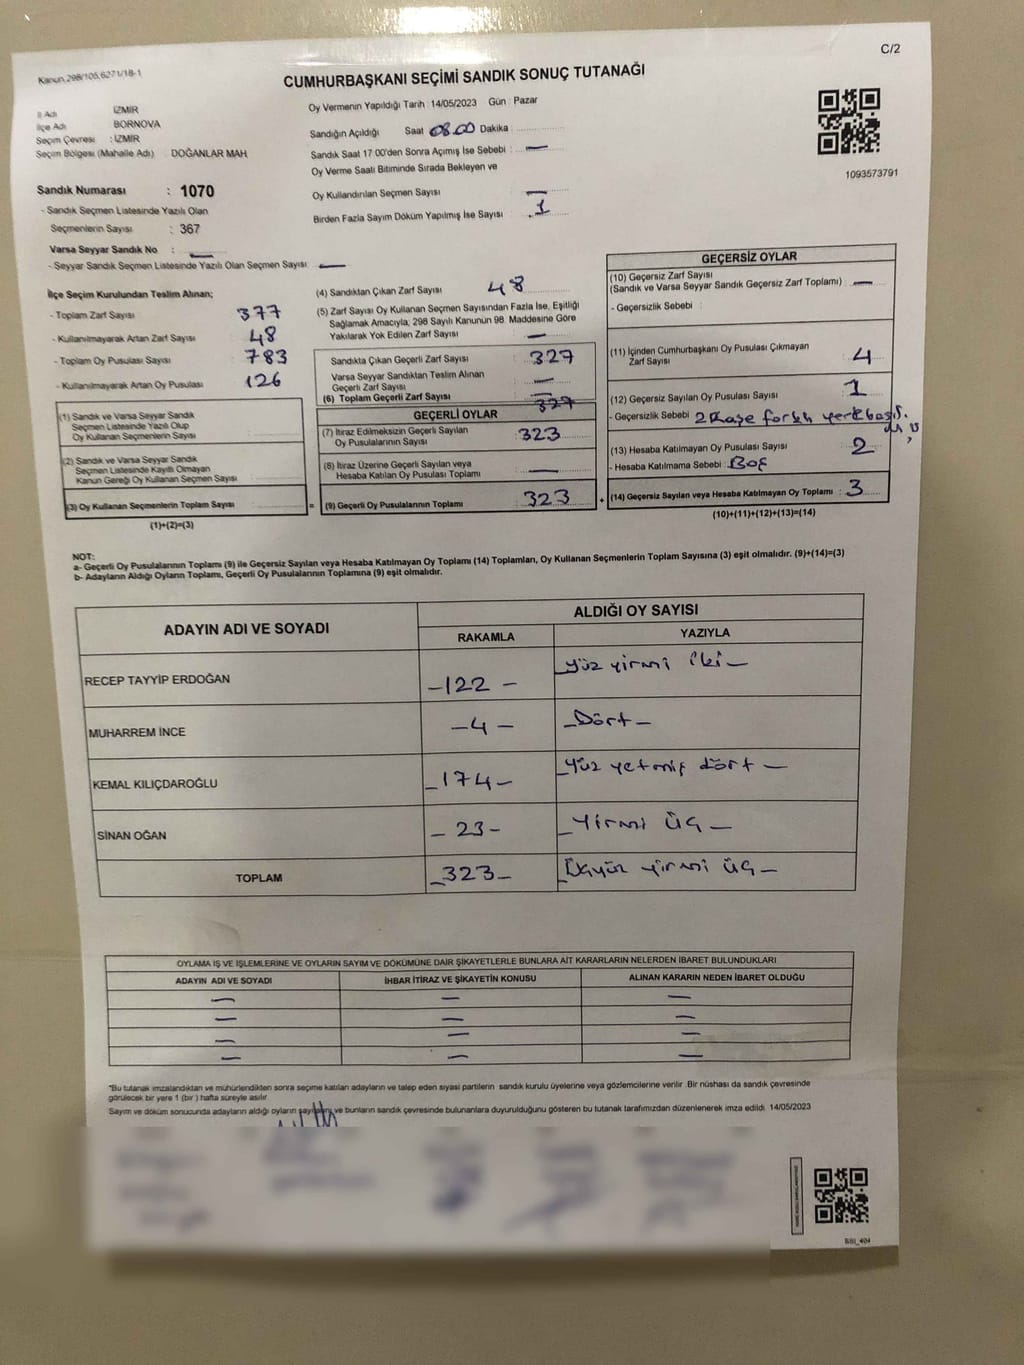 C/2
Kanun 298/105,6271/18-1
CUMHURBAŞKANI SEÇİMİ SANDIK SONUÇ TUTANAĞI
İl Adı : İZMİR
İlçe Adı : BORNOVA
Seçim Çevresi : İZMİR
Seçim Bölgesi (Mahalle Adı) : DOĞANLAR MAH
Sandık Numarası : 1070
- Sandık Seçmen Listesinde Yazılı Olan
Seçmenlerin Sayısı : 367
Varsa Seyyar Sandık No : —
- Seyyar Sandık Seçmen Listesinde Yazılı Olan Seçmen Sayısı: —
Oy Vermenin Yapıldığı Tarih : 14/05/2023 Gün : Pazar
Sandığın Açıldığı Saat 08.00 Dakika :
Sandık Saat 17:00'den Sonra Açılmış İse Sebebi : —
Oy Verme Saati Bitiminde Sırada Bekleyen ve
Oy Kullandırılan Seçmen Sayısı : —
Birden Fazla Sayım Döküm Yapılmış İse Sayısı : 1
1093573791
İlçe Seçim Kurulundan Teslim Alınan;
- Toplam Zarf Sayısı : 377
- Kullanılmayarak Artan Zarf Sayısı : 48
- Toplam Oy Pusulası Sayısı : 783
- Kullanılmayarak Artan Oy Pusulası : 126
(1) Sandık ve Varsa Seyyar Sandık
Seçmen Listesinde Yazılı Olup
Oy Kullanan Seçmenlerin Sayısı :
(2) Sandık ve Varsa Seyyar Sandık
Seçmen Listesinde Kayıtlı Olmayan
Kanun Gereği Oy Kullanan Seçmen Sayısı :
(3) Oy Kullanan Seçmenlerin Toplam Sayısı :
(1)+(2)=(3)
(4) Sandıktan Çıkan Zarf Sayısı : 48
(5) Zarf Sayısı Oy Kullanan Seçmen Sayısından Fazla İse, Eşitliği
Sağlamak Amacıyla; 298 Sayılı Kanunun 98. Maddesine Göre
Yakılarak Yok Edilen Zarf Sayısı : —
Sandıkta Çıkan Geçerli Zarf Sayısı : 327
Varsa Seyyar Sandıktan Teslim Alınan
Geçerli Zarf Sayısı : —
(6) Toplam Geçerli Zarf Sayısı : 327
GEÇERLİ OYLAR
(7) İtiraz Edilmeksizin Geçerli Sayılan
Oy Pusulalarının Sayısı : 323
(8) İtiraz Üzerine Geçerli Sayılan veya
Hesaba Katılan Oy Pusulası Toplamı : —
= (9) Geçerli Oy Pusulalarının Toplamı : 323 +
GEÇERSİZ OYLAR
(10) Geçersiz Zarf Sayısı
(Sandık ve Varsa Seyyar Sandık Geçersiz Zarf Toplamı) : —
- Geçersizlik Sebebi :
(11) İçinden Cumhurbaşkanı Oy Pusulası Çıkmayan
Zarf Sayısı : 4
(12) Geçersiz Sayılan Oy Pusulası Sayısı : 1
- Geçersizlik Sebebi : 2 Kaşe farklı yere
(13) Hesaba Katılmayan Oy Pusulası Sayısı : 2
- Hesaba Katılmama Sebebi : Boş
(14) Geçersiz Sayılan veya Hesaba Katılmayan Oy Toplamı : 3
(10)+(11)+(12)+(13)=(14)
NOT:
a- Geçerli Oy Pusulalarının Toplamı (9) ile Geçersiz Sayılan veya Hesaba Katılmayan Oy Toplamı (14) Toplamları, Oy Kullanan Seçmenlerin Toplam Sayısına (3) eşit olmalıdır. (9)+(14)=(3)
b- Adayların Aldığı Oyların Toplamı, Geçerli Oy Pusulalarının Toplamına (9) eşit olmalıdır.
ADAYIN ADI VE SOYADI
ALDIĞI OY SAYISI
RAKAMLA YAZIYLA
RECEP TAYYİP ERDOĞAN -122- -yüz yirmi iki-
MUHARREM İNCE -4- -Dört-
KEMAL KILIÇDAROĞLU -174- -Yüz yetmiş dört-
SİNAN OĞAN -23- -Yirmi üç-
TOPLAM -323- -Üçyüz yirmi üç-
OYLAMA İŞ VE İŞLEMLERİNE VE OYLARIN SAYIM VE DÖKÜMÜNE DAİR ŞİKAYETLERLE BUNLARA AİT KARARLARIN NELERDEN İBARET BULUNDUKLARI
ADAYIN ADI VE SOYADI İHBAR İTİRAZ VE ŞİKAYETİN KONUSU ALINAN KARARIN NEDEN İBARET OLDUĞU
— — —
— — —
— — —
— — —
*Bu tutanak imzalandıktan ve mühürlendikten sonra seçime katılan adayların ve talep eden siyasi partilerin sandık kurulu üyelerine veya gözlemcilerine verilir. Bir nüshası da sandık çevresinde
görülecek bir yere 1 (bir) hafta süreyle asılır.
Sayım ve döküm sonucunda adayların aldığı oyların sayılarını ve bunların sandık çevresinde bulunanlara duyurulduğunu gösteren bu tutanak tarafımızdan düzenlenerek imza edildi. 14/05/2023
BBI_404